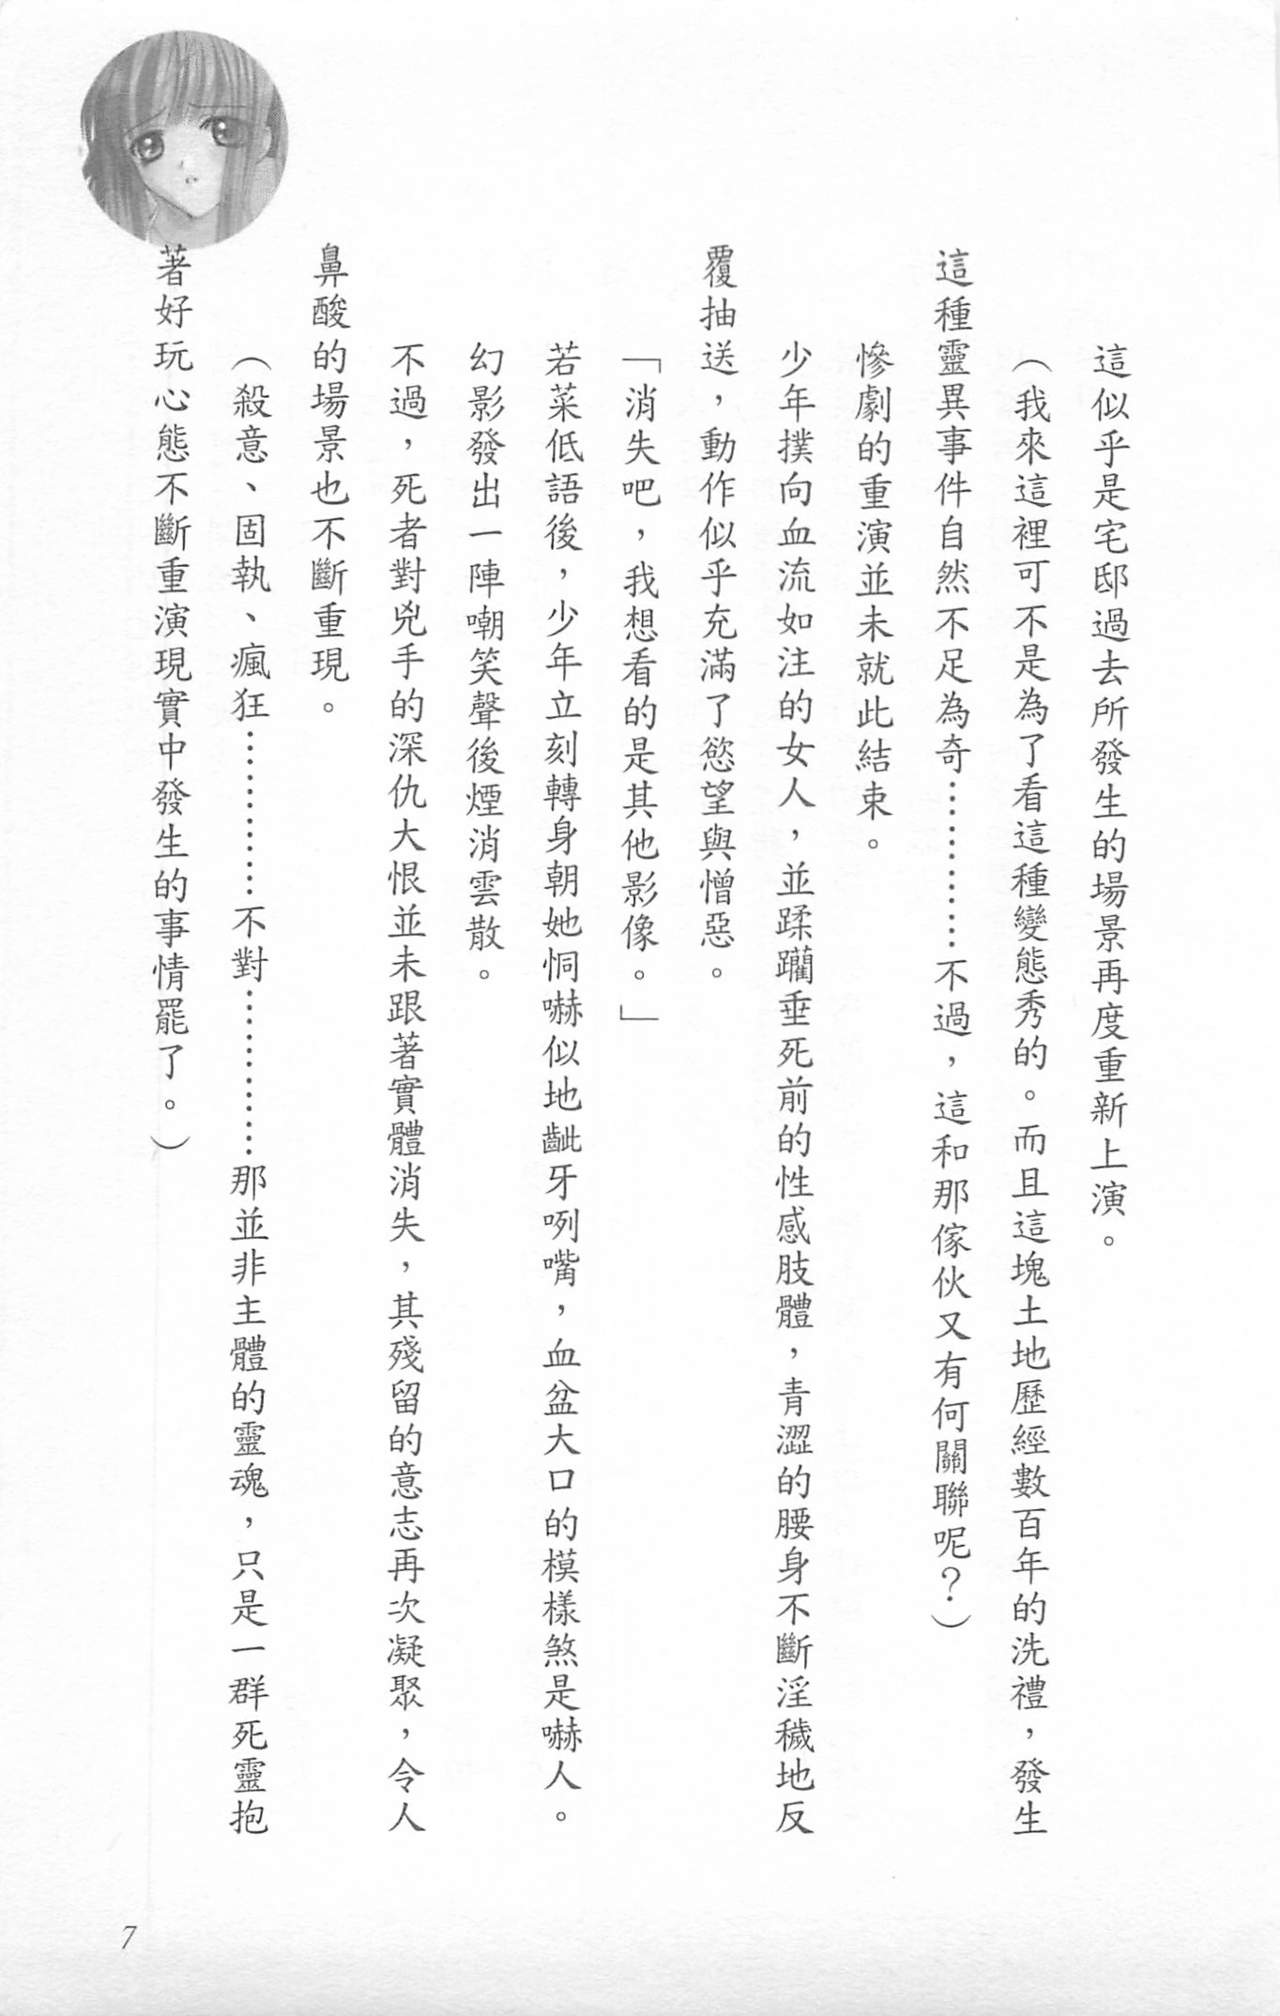 這似乎是宅邸過去所發生的場景再度重新上演。
（我來這裡可不是為了看這種變態秀的。而且這塊土地歷經數百年的洗禮，發生
這種靈異事件自然不足為奇…………不過，這和那傢伙又有何關聯呢？）
慘劇的重演並未就此結束。
「消失吧，我想看的是其他影像。」
若菜低語後，少年立刻轉身朝她恫嚇似地齜牙咧嘴，血盆大口的模樣煞是嚇人。
幻影發出一陣嘲笑聲後煙消雲散。
不過，死者對兇手的深仇大恨並未跟著實體消失，其殘留的意志再次凝聚，令人
鼻酸的場景也不斷重現。
（殺意、固執、瘋狂…………不對…………那並非主體的靈魂，只是一群死靈抱
著好玩心態不斷重演現實中發生的事情罷了。）
7